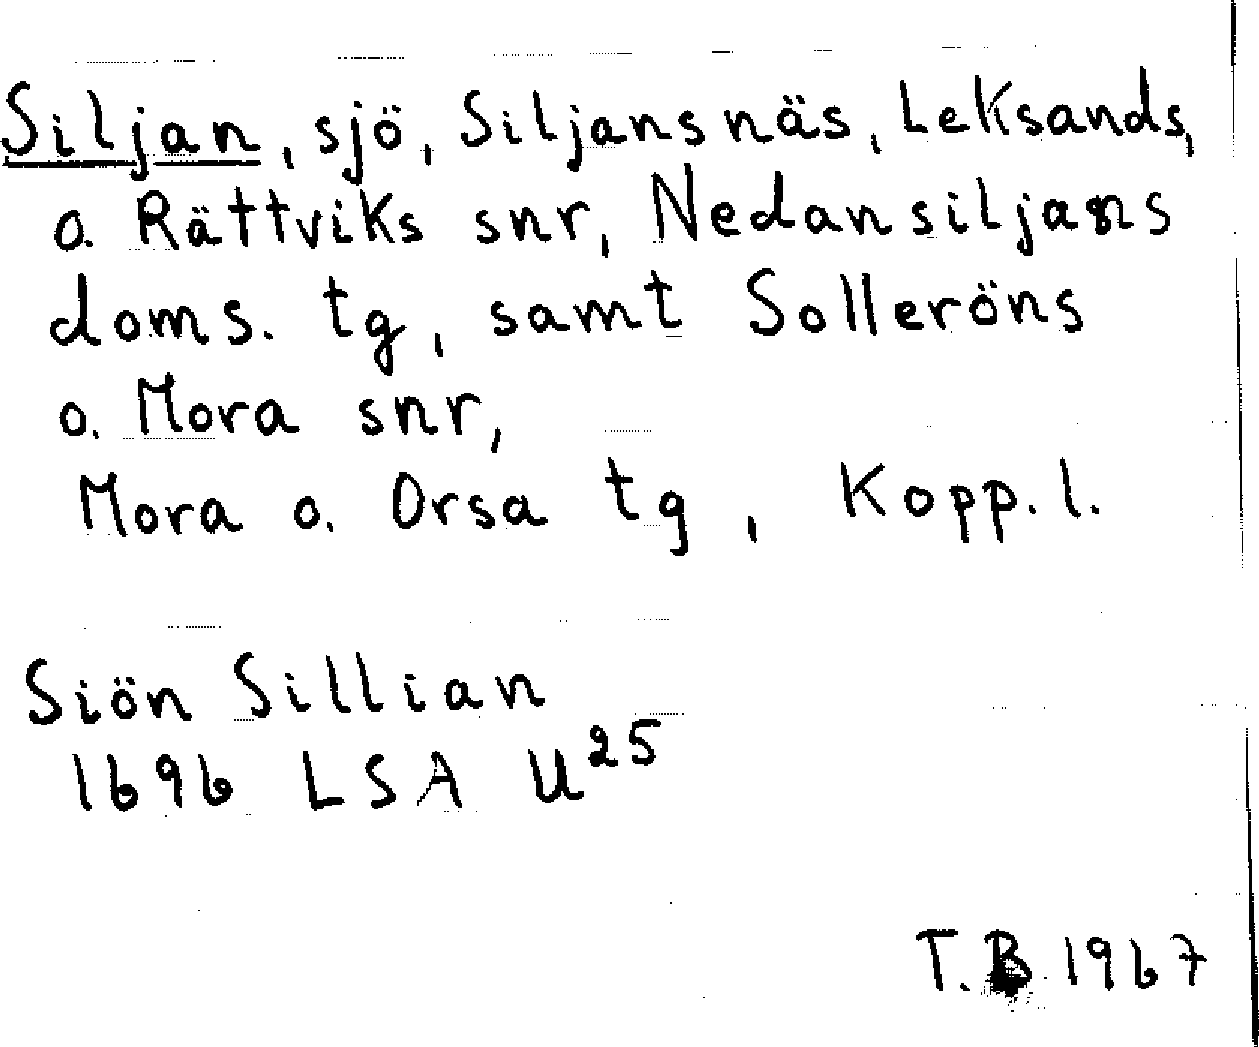 Siljan, sjö, Siljansnäs, Leksands,
o. Rättviks snr, Nedansiljans
doms. tg, samt Solleröns
o. Mora snr,
Mora o. Orsa tg, Kopp. l.
Siön Sillian
1696 LSA U25
T.B. 1967